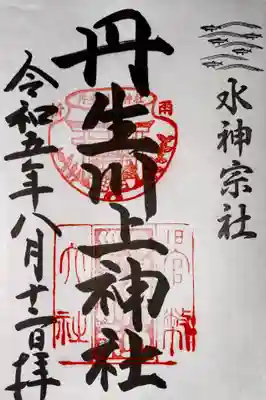 水神宗社
丹生川上神社
令和五年八月十二日拝